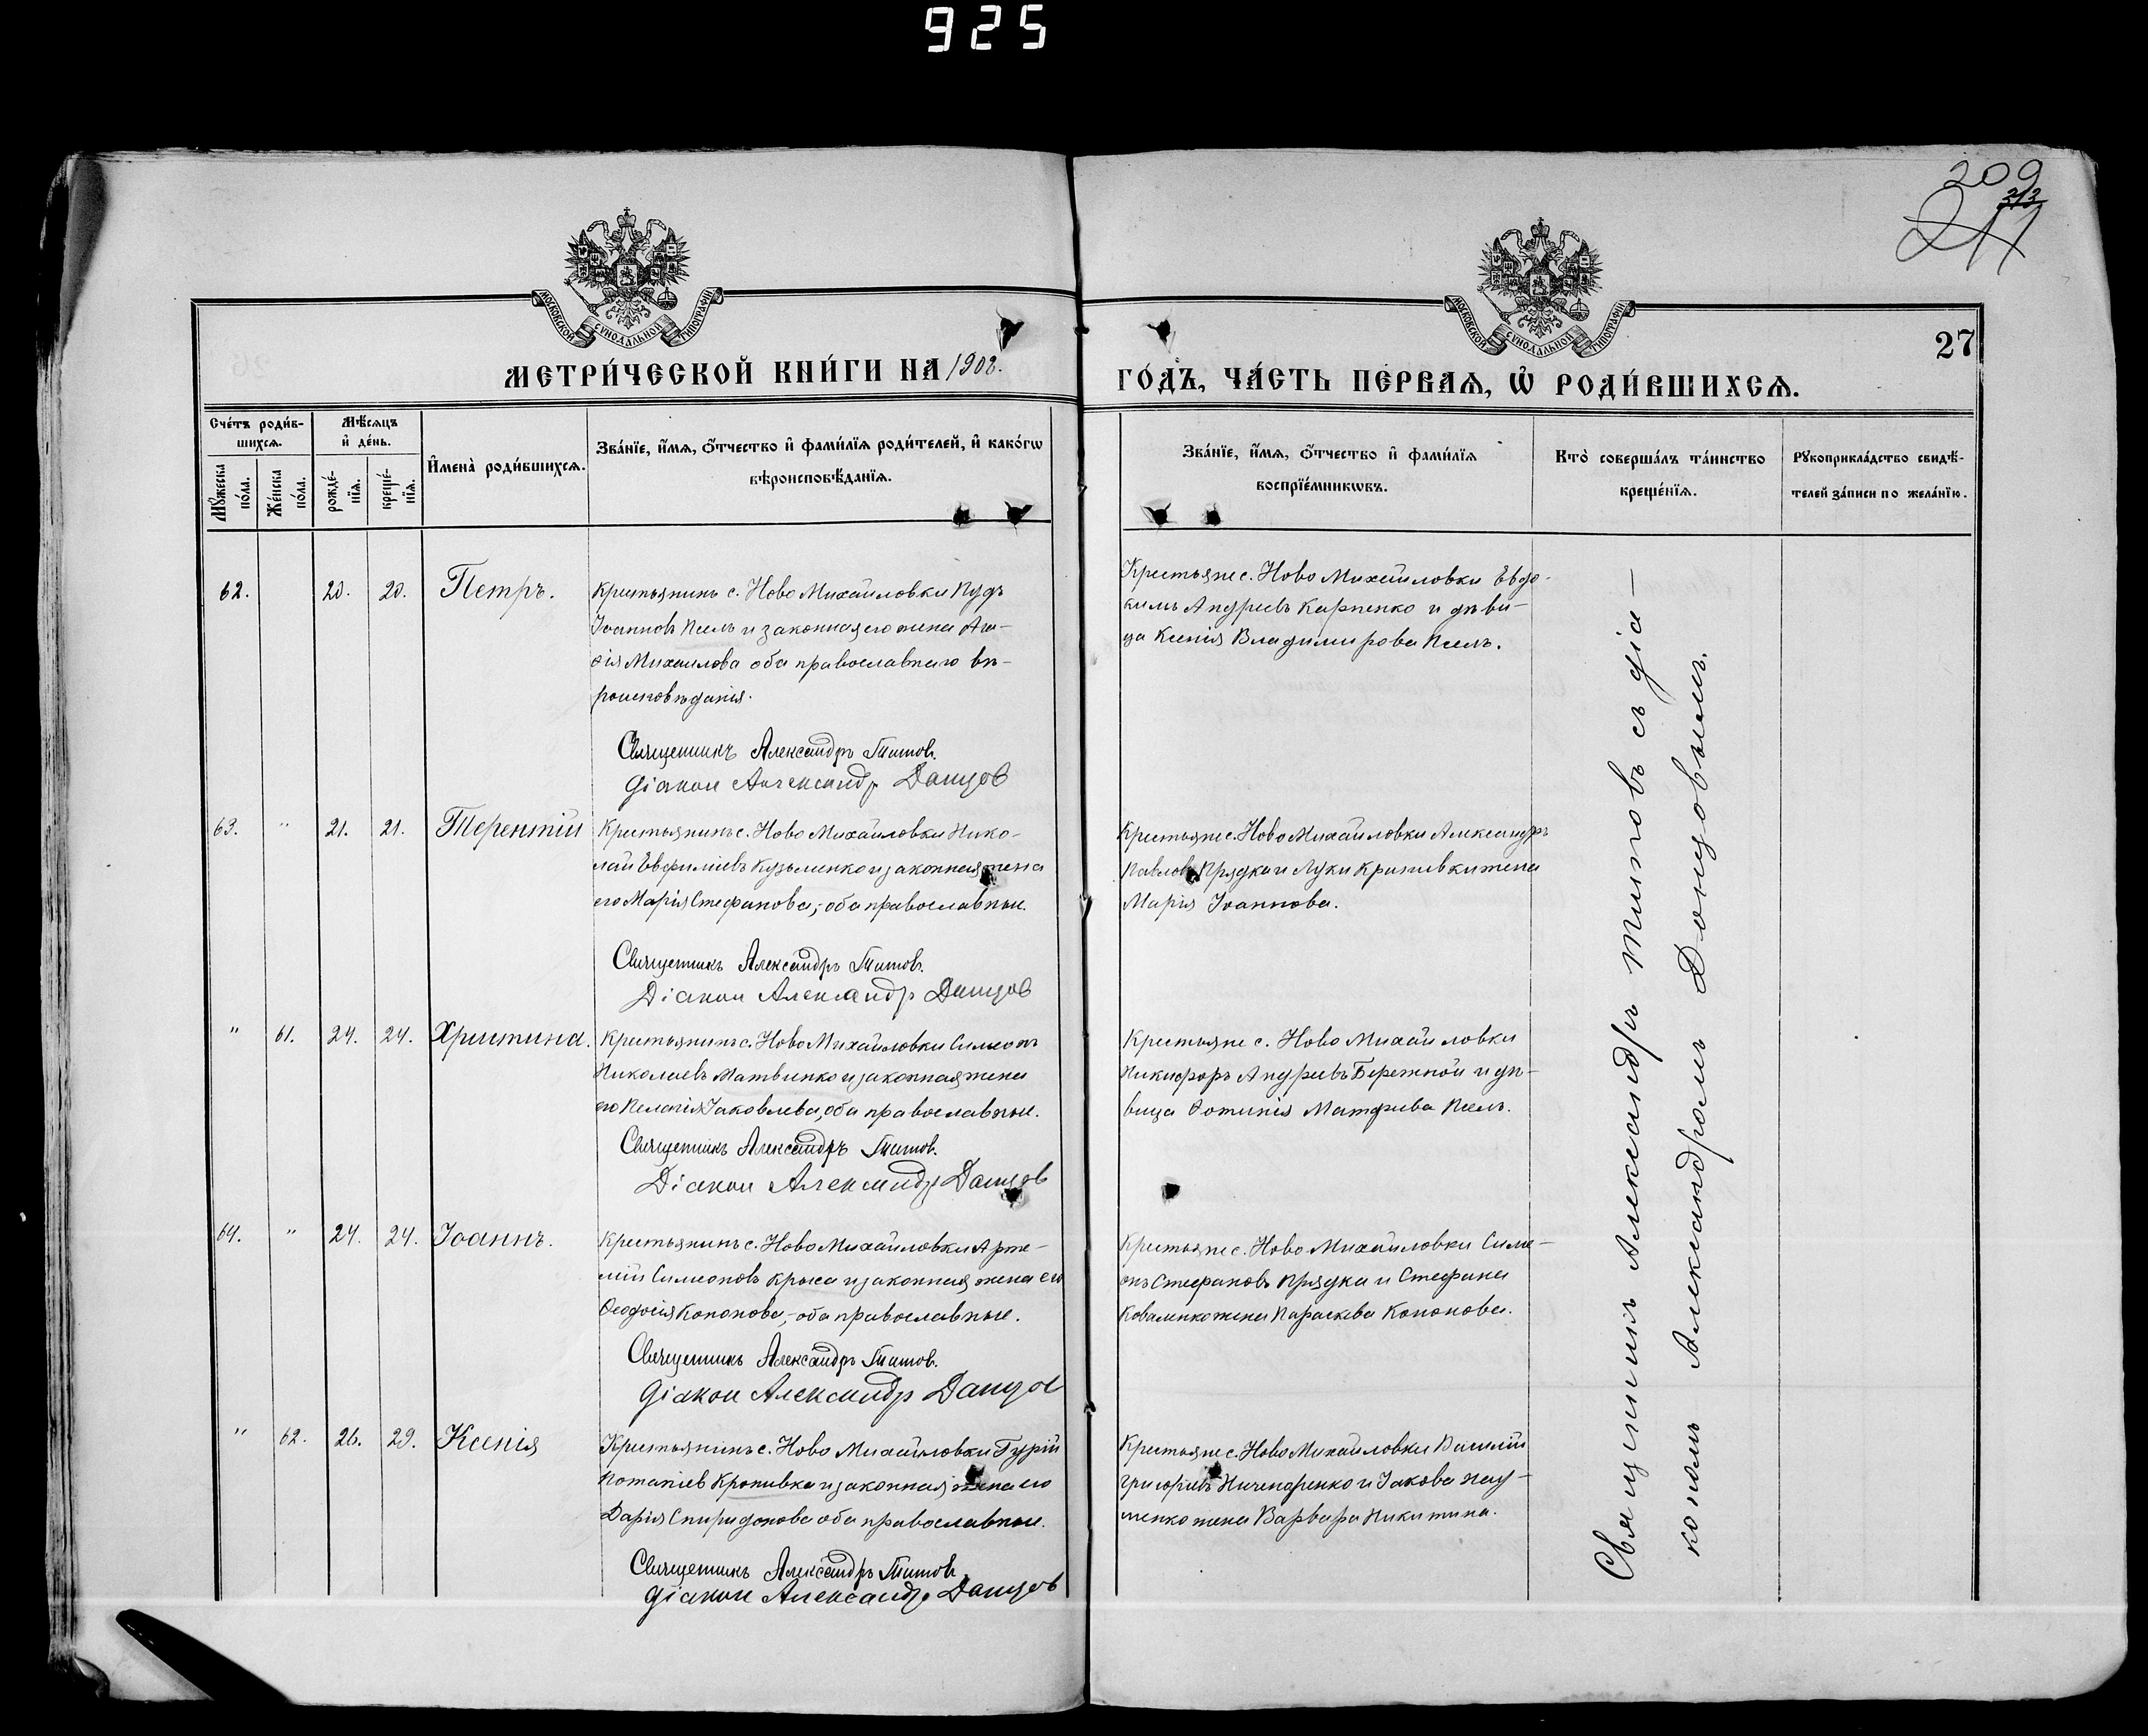 925
209
213
211
МОСКОВСКОЙ СУНОДАЛЬНОЙ ТИПОГРАФІИ
МОСКОВСКОЙ СУНОДАЛЬНОЙ ТИПОГРАФІИ
27
МЕТРИ́ЧЕСКОЙ КНИ́ГИ НА 1908.
ГО́ДЪ, ЧА́СТЬ ПЕ́РВАѦ, Ѿ РОДИ́ВШИХСѦ.
Сче́тъ роди́в-
шихсѧ.
Мꙋ́жеска по́ла.
Же́нска по́ла.
Мѣ́сѧцъ
и де́нь.
рожде́-
нїѧ.
креще́-
нїѧ.
И҆мена̀ роди́вшихсѧ.
Зва́нїе, и҆́мѧ, ѻ҆́тчество и҆ фами́лїѧ роди́телей, и҆ како́гѡ
вѣроисповѣ́данїѧ.
Зва́нїе, и҆́мѧ, ѻ҆́тчество и҆ фами́лїѧ
воспрїе́мникѡвъ.
Кто̀ соверша́лъ та́инство
креще́нїѧ.
Рꙋкоприкла́дство свидѣ́-
телей за́писи по жела́нїю.
62. 20. 20. Петръ.
Крестьянинъ с. Ново Михайловки Іудъ
Іоанновъ Кгель и законная его жена Ага-
фія Михаилова оба православнаго вѣ-
роисповѣданія.
Священникъ Александръ Титов.
діакон Александр Данцов
Крестьяне с. Ново Михайловки Евдо-
кимъ Андреевъ Карпенко и дѣви-
ца Ксенія Владимирова
63. " 21. 21. Терентій
Крестьянинъ с. Ново Михайловки Нико-
лай Евфиміевъ Кузьменко и законная жена
его Марія Стефанова, - оба православные.
Священникъ Александръ Титов.
Діакон Александр Данцов
Крестьяне с. Ново Михайловки Александръ
Павловъ Прядка и Луки Кропивки жена
Марія Іоаннова.
" 61. 24. 24. Христина.
Крестьянинъ с. Ново Михайловки Симеонъ
Николаевъ Матвиенко и законная жена
его Пелагія Іаковлева, оба православные.
Священникъ Александръ Титов.
Діакон Александр Данцов
Крестьяне с. Ново Михайловки
Никифоръ Андреевъ Бережной и дѣ-
вица Фотинія Матфиева
64. " 24. 24. Іоаннъ.
Крестьянинъ с. Ново Михайловки Арте-
мій Симеоновъ Крыса и законная жена его
Феодосія Кононова, - оба православные.
Священникъ Александръ Титов.
діакон Александр Данцов
Крестьяне с. Ново Михайловки Симе-
онъ Стефановъ Прядка и Стефана
Коваленко жена Параскева Кононова.
" 62. 26. 29. Ксенія
Крестьянинъ с. Ново Михайловки Гурій
Потапіев Кропивка и законная жена его
Дарія Спиридонова оба православные.
Священникъ Александръ Титов.
діакон Александр Данцов
Крестьяне с. Ново Михайловки Василій
Григорьевъ Ничепоренко и Іакова Нау-
менко жена Варвара Никитина.
Священникъ Александръ Титовъ съ діа-
кономъ Александромъ Донцовымъ.